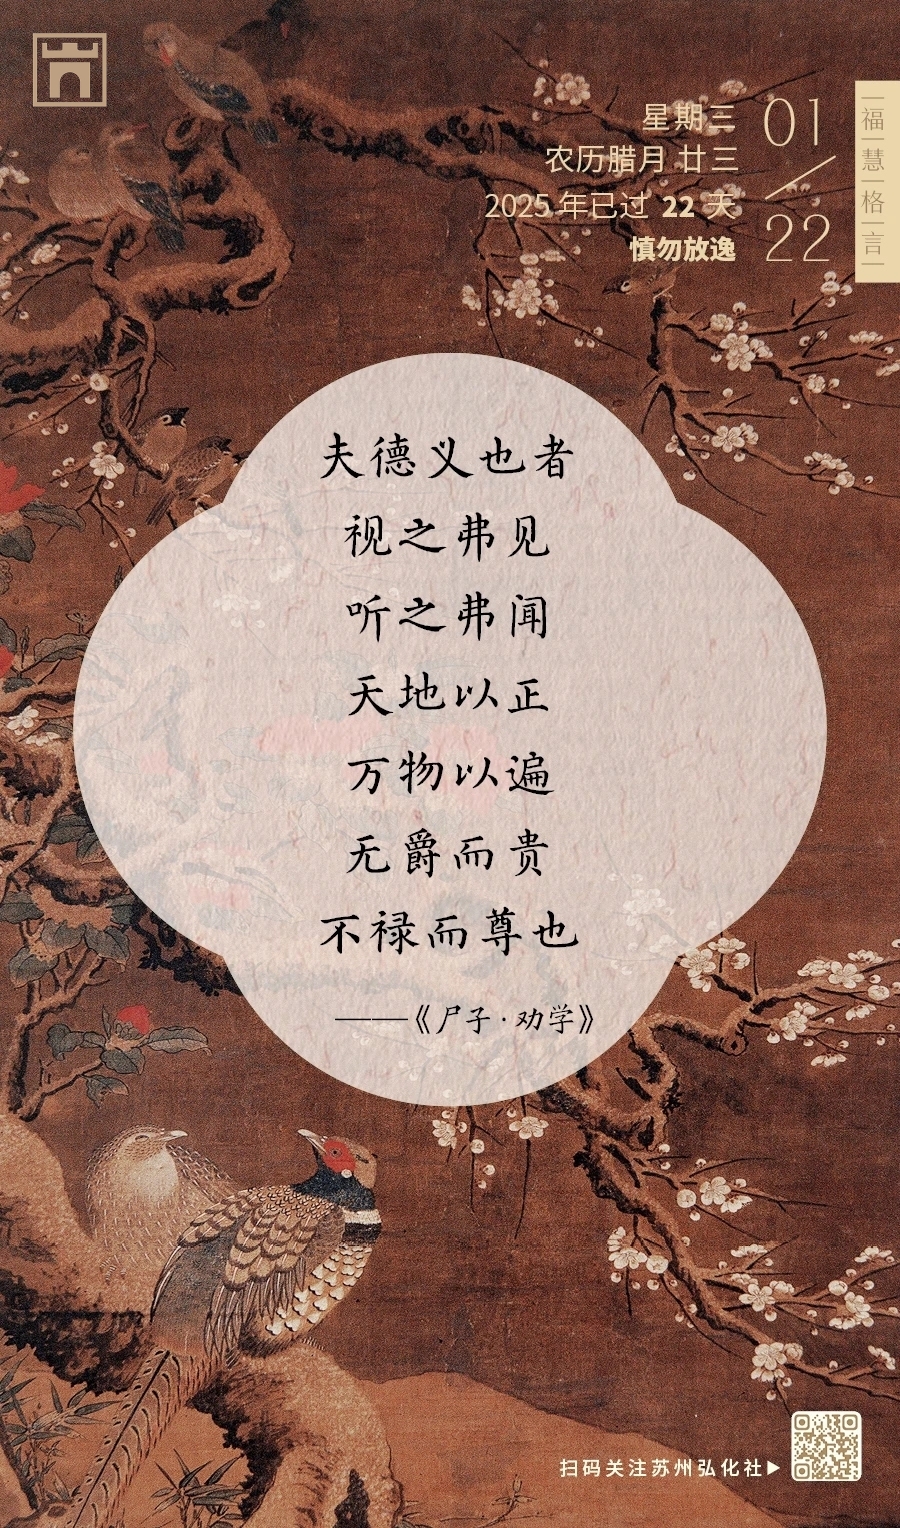 星期三
农历腊月 廿三
2025 年已过 22 天
慎勿放逸
01
22
福慧格言
夫德义也者
视之弗见
听之弗闻
天地以正
万物以遍
无爵而贵
不禄而尊也
——《尸子·劝学》
扫码关注苏州弘化社